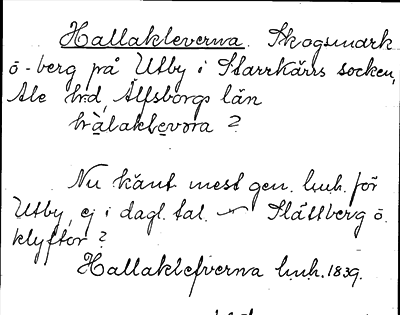 Hallakleverna. Skogsmark
ö. berg på Utby i Starrkärrs socken,
Ale hrd, Älfsborgs län
hàlaklevora ?
Nu känt mest gen. huh. för
Utby, ej i dagl. tal. — Slättberg ö.
klyftor ?
Hallaklefverna huh. 1839.